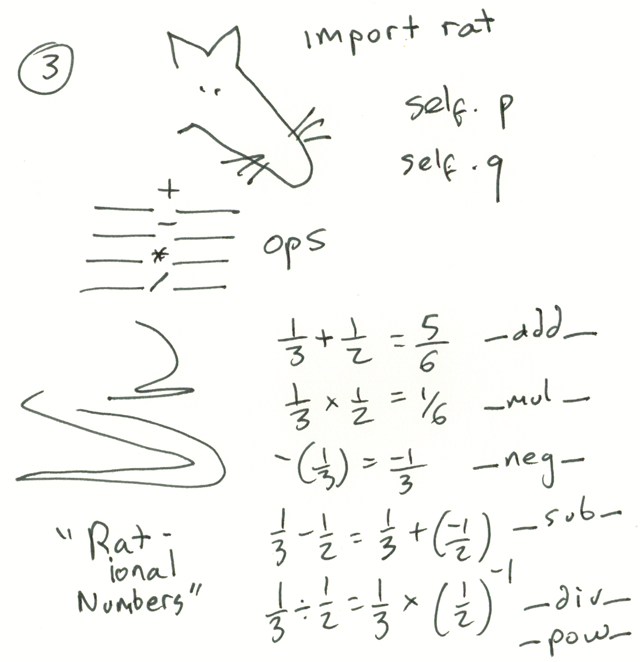 3
import rat
self.p
self.q
__ + __
__ - __
__ * __
__ / __
ops
1/3 + 1/2 = 5/6 _add_
1/3 × 1/2 = 1/6 _mul_
-(1/3) = -1/3 _neg_
1/3 - 1/2 = 1/3 + (-1/2) _sub_
1/3 ÷ 1/2 = 1/3 × (1/2)^-1 _div_
_pow_
"Rat-
ional
Numbers"